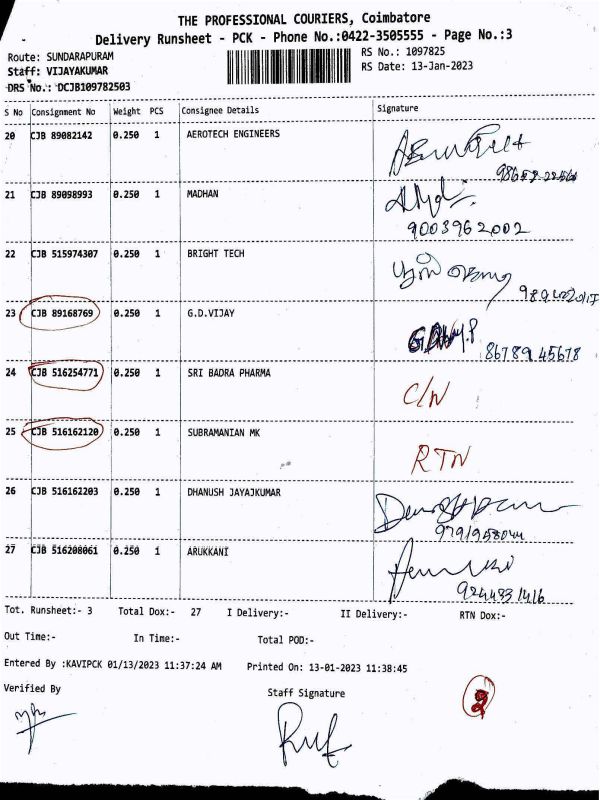 THE PROFESSIONAL COURIERS, Coimbatore
Delivery Runsheet - PCK - Phone No.:0422-3505555 - Page No.:3
Route: SUNDARAPURAM RS No.: 1097825
Staff: VIJAYAKUMAR RS Date: 13-Jan-2023
DRS No.: DCJB109782503
S No Consignment No Weight PCS Consignee Details Signature
20 CJB 89082142 0.250 1 AEROTECH ENGINEERS
21 CJB 89098993 0.250 1 MADHAN
9003962002
22 CJB 515974307 0.250 1 BRIGHT TECH
23 CJB 89168769 0.250 1 G.D.VIJAY
86789 45678
24 CJB 516254771 0.250 1 SRI BADRA PHARMA C/N
25 CJB 516162120 0.250 1 SUBRAMANIAN MK RTN
26 CJB 516162203 0.250 1 DHANUSH JAYAJKUMAR
27 CJB 516208061 0.250 1 ARUKKANI
Tot. Runsheet:- 3 Total Dox:- 27 I Delivery:- II Delivery:- RTN Dox:-
Out Time:- In Time:- Total POD:-
Entered By :KAVIPCK 01/13/2023 11:37:24 AM Printed On: 13-01-2023 11:38:45
Verified By Staff Signature